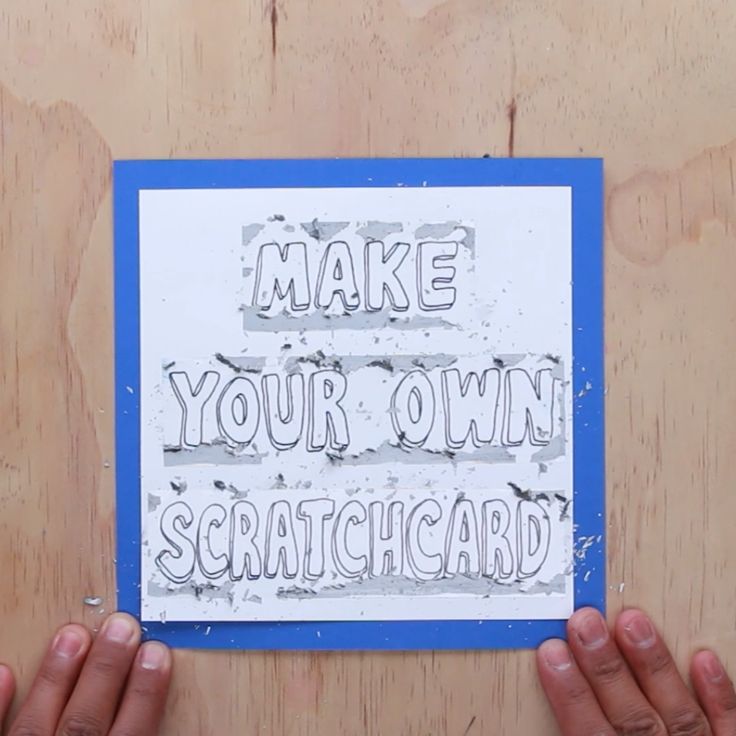 MAKE
YOUR OWN
SCRATCHCARD